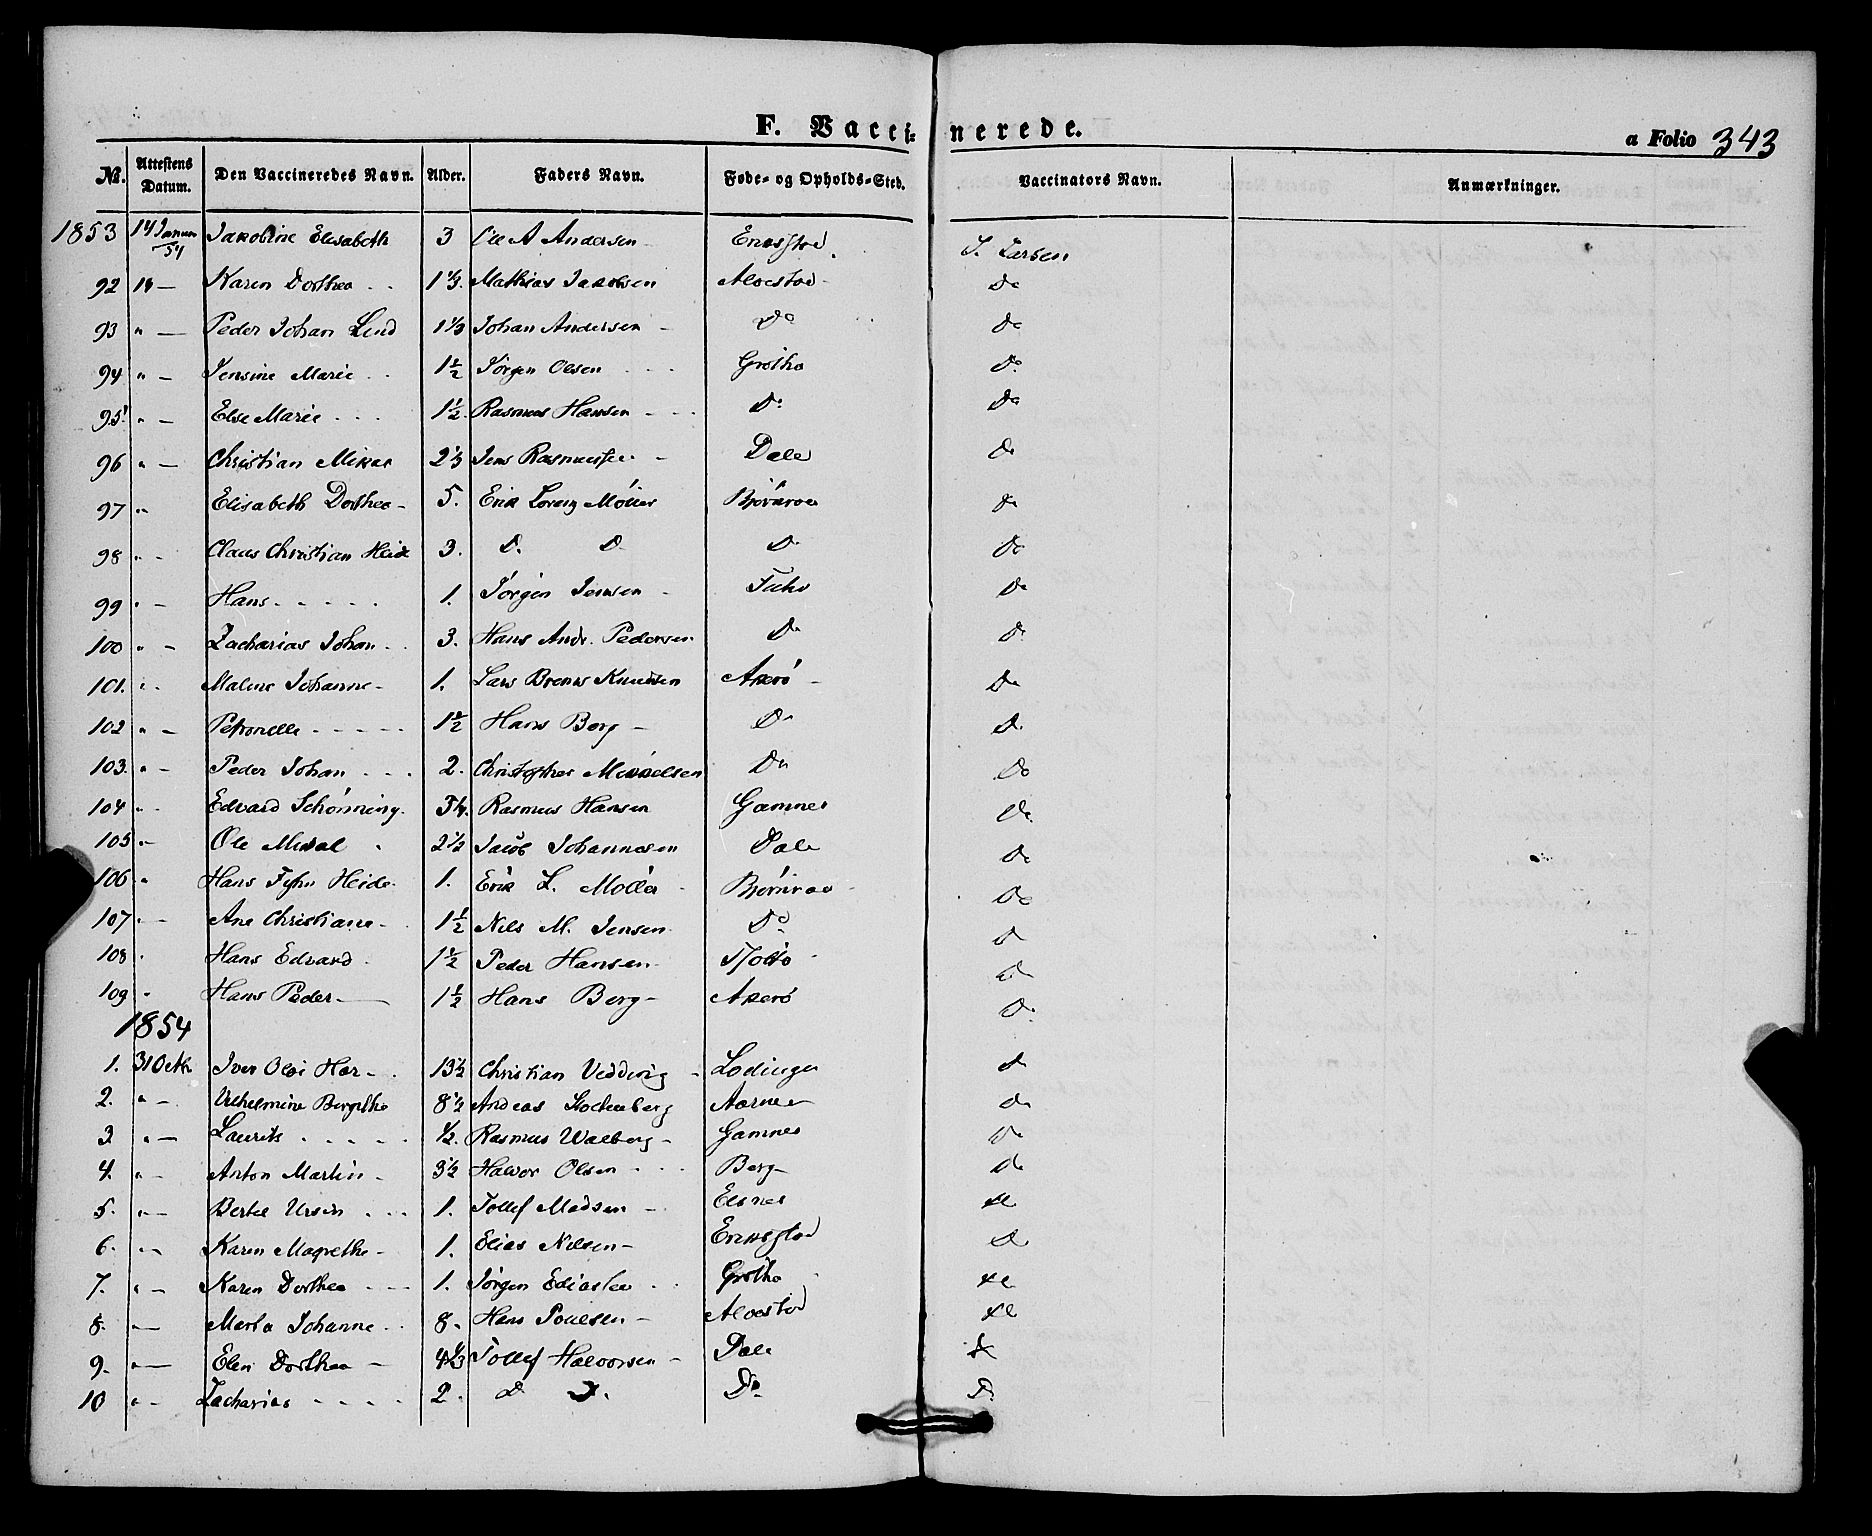 F. Vacci-nerede. a Folio 343
Nr. Attestens Datum. Den Vaccineredes Navn. Alder. Faders Navn. Føde- og Opholds-Sted. Vaccinators Navn. Anmærkninger.
1853 14 Januar 54 Jakobine Elisabeth 3 Ole A Andersen Eriksstad. J. Larsen
92 14 — Karen Dorthea - - 1 1/3. Mathias Jakobsen Aloestad - Do
93 " — Peder Johan Lind 1 1/3 Johan Andersen - Do Do
94 " — Jensine Marie - - 1 1/2 Jörgen Olsen - - - Grötho Do
95. " — Else Marie - - - 1 1/2. Rasmus Hansen - - - Do Do
96 " — Christian Mikal 2 1/3 Jens Rasmussen - Dale Do
97 " Elisabeth Dorthea - 5. Erik Lorenz Möller Björnroe Do
98 " - Claus Christian Heide 3. D. D. D. Do
99 " — Hans - - - - - 1. Jörgen Jensen - Do
100 " - Zacharias Johan - - 3. Hans Andr. Pedersen Do Do
101. " - Maline Johanne - 1. Lars Brenns Knudsen Akerö - Do
102 " — Petronelle - - - - - 1 1/2 Hans Berg - Do Do
103. " — Peder Johan - - - 2. Christopher Mikkelsen Do Do
104 " - Edvard Schönning. Rasmus Hansen Gamnes Do
105 " - Ole Mikal 2 1/2 Jacob Johannesen Dale Do
106 " Hans Fyhn Heide - 1. Erik L. Möller - Björnroe - Do
107 " — Ane Christiane - 1 1/2 Nils M. Jensen Do Do
108 " Hans Edvard - 1 1/2 Peder Hansen - Do
109 " Hans Peder — 1 1/2 Hans Berg - Akerö Do
1854
1. 31 Octbr. Iver Olai Har - 13 1/2 Christian Vedding - Lodingen Do
2. " — Vilhelmine Bergithe 8 1/2 Andeas Aarnes Do
3 " — Laurits - - - - - 1/2. Rasmus Walberg - Gamnes Do
4. " — Anton Martin - 3 1/2 Halvor Olsen - - - Berg - Do
5. " — Bertel Ursin - - - 1. Tollef Madsen - Elsnes
6. " — Karen Magrethe - 1. Elias Nilsen - Eriksstad D.
7. " — Karen Dorthea - - - 1. Jörgen - - Grötho
8. " — Marta Johanne - - 8. Hans Poulsen - Aloestad
9. " — Elen Dorthea - 4 1/3 Tollef Halvorsen - Dale
10 " - Zacharias - - - - 2. D. D. Do D.